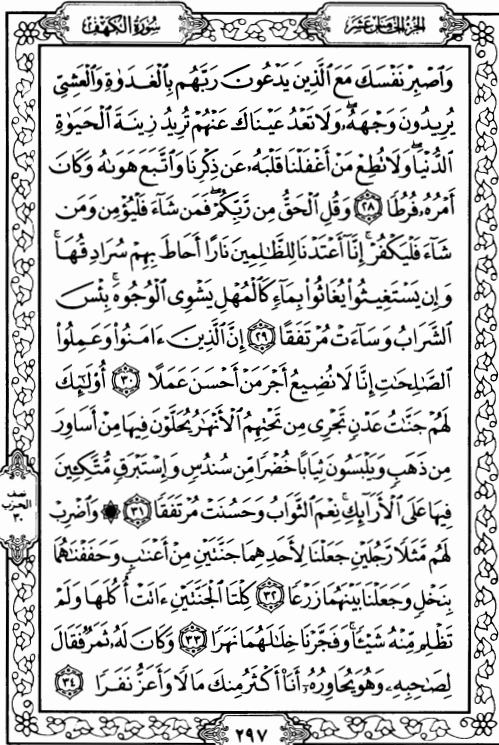 سورة الكهف
الجزء الخامس عشر
وَاصْبِرْ نَفْسَكَ مَعَ الَّذِينَ يَدْعُونَ رَبَّهُم بِالْغَدَوٰةِ وَالْعَشِيِّ
يُرِيدُونَ وَجْهَهُۥ وَلَا تَعْدُ عَيْنَاكَ عَنْهُمْ تُرِيدُ زِينَةَ الْحَيَوٰةِ
الدُّنْيَا وَلَا تُطِعْ مَنْ أَغْفَلْنَا قَلْبَهُۥ عَن ذِكْرِنَا وَاتَّبَعَ هَوَىٰهُ وَكَانَ
أَمْرُهُۥ فُرُطًا ٢٨ وَقُلِ الْحَقُّ مِن رَّبِّكُمْ فَمَن شَآءَ فَلْيُؤْمِن وَمَن
شَآءَ فَلْيَكْفُرْ إِنَّآ أَعْتَدْنَا لِلظَّٰلِمِينَ نَارًا أَحَاطَ بِهِمْ سُرَادِقُهَا
وَإِن يَسْتَغِيثُوا۟ يُغَاثُوا۟ بِمَآءٍ كَالْمُهْلِ يَشْوِى الْوُجُوهَ بِئْسَ
الشَّرَابُ وَسَآءَتْ مُرْتَفَقًا ٢٩ إِنَّ الَّذِينَ ءَامَنُوا۟ وَعَمِلُوا۟
الصَّٰلِحَٰتِ إِنَّا لَا نُضِيعُ أَجْرَ مَنْ أَحْسَنَ عَمَلًا ٣٠ أُو۟لَٰٓئِكَ
لَهُمْ جَنَّٰتُ عَدْنٍ تَجْرِى مِن تَحْتِهِمُ الْأَنْهَٰرُ يُحَلَّوْنَ فِيهَا مِنْ أَسَاوِرَ
مِن ذَهَبٍ وَيَلْبَسُونَ ثِيَابًا خُضْرًا مِّن سُندُسٍ وَإِسْتَبْرَقٍ مُّتَّكِـِٔينَ
فِيهَا عَلَى الْأَرَآئِكِ نِعْمَ الثَّوَابُ وَحَسُنَتْ مُرْتَفَقًا ٣١ ۞ وَاضْرِبْ
لَهُم مَّثَلًا رَّجُلَيْنِ جَعَلْنَا لِأَحَدِهِمَا جَنَّتَيْنِ مِنْ أَعْنَٰبٍ وَحَفَفْنَٰهُمَا
بِنَخْلٍ وَجَعَلْنَا بَيْنَهُمَا زَرْعًا ٣٢ كِلْتَا الْجَنَّتَيْنِ ءَاتَتْ أُكُلَهَا وَلَمْ
تَظْلِم مِّنْهُ شَيْـًٔا وَفَجَّرْنَا خِلَٰلَهُمَا نَهَرًا ٣٣ وَكَانَ لَهُۥ ثَمَرٌ فَقَالَ
لِصَٰحِبِهِۦ وَهُوَ يُحَاوِرُهُۥٓ أَنَا۠ أَكْثَرُ مِنكَ مَالًا وَأَعَزُّ نَفَرًا ٣٤
نصف
الحزب
٣٠
٢٩٧